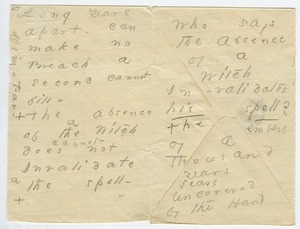 Long Years
apart - can
make no
Breach a
second cannot
fill -
+ the absence
of the Witch
does not
cannot -
Invalidate
the spell -
Who says
The Absence
of a
Witch
In - validates
his spell?
+ the embers
of a
Thousand
Years
Years
uncovered
by the Hand